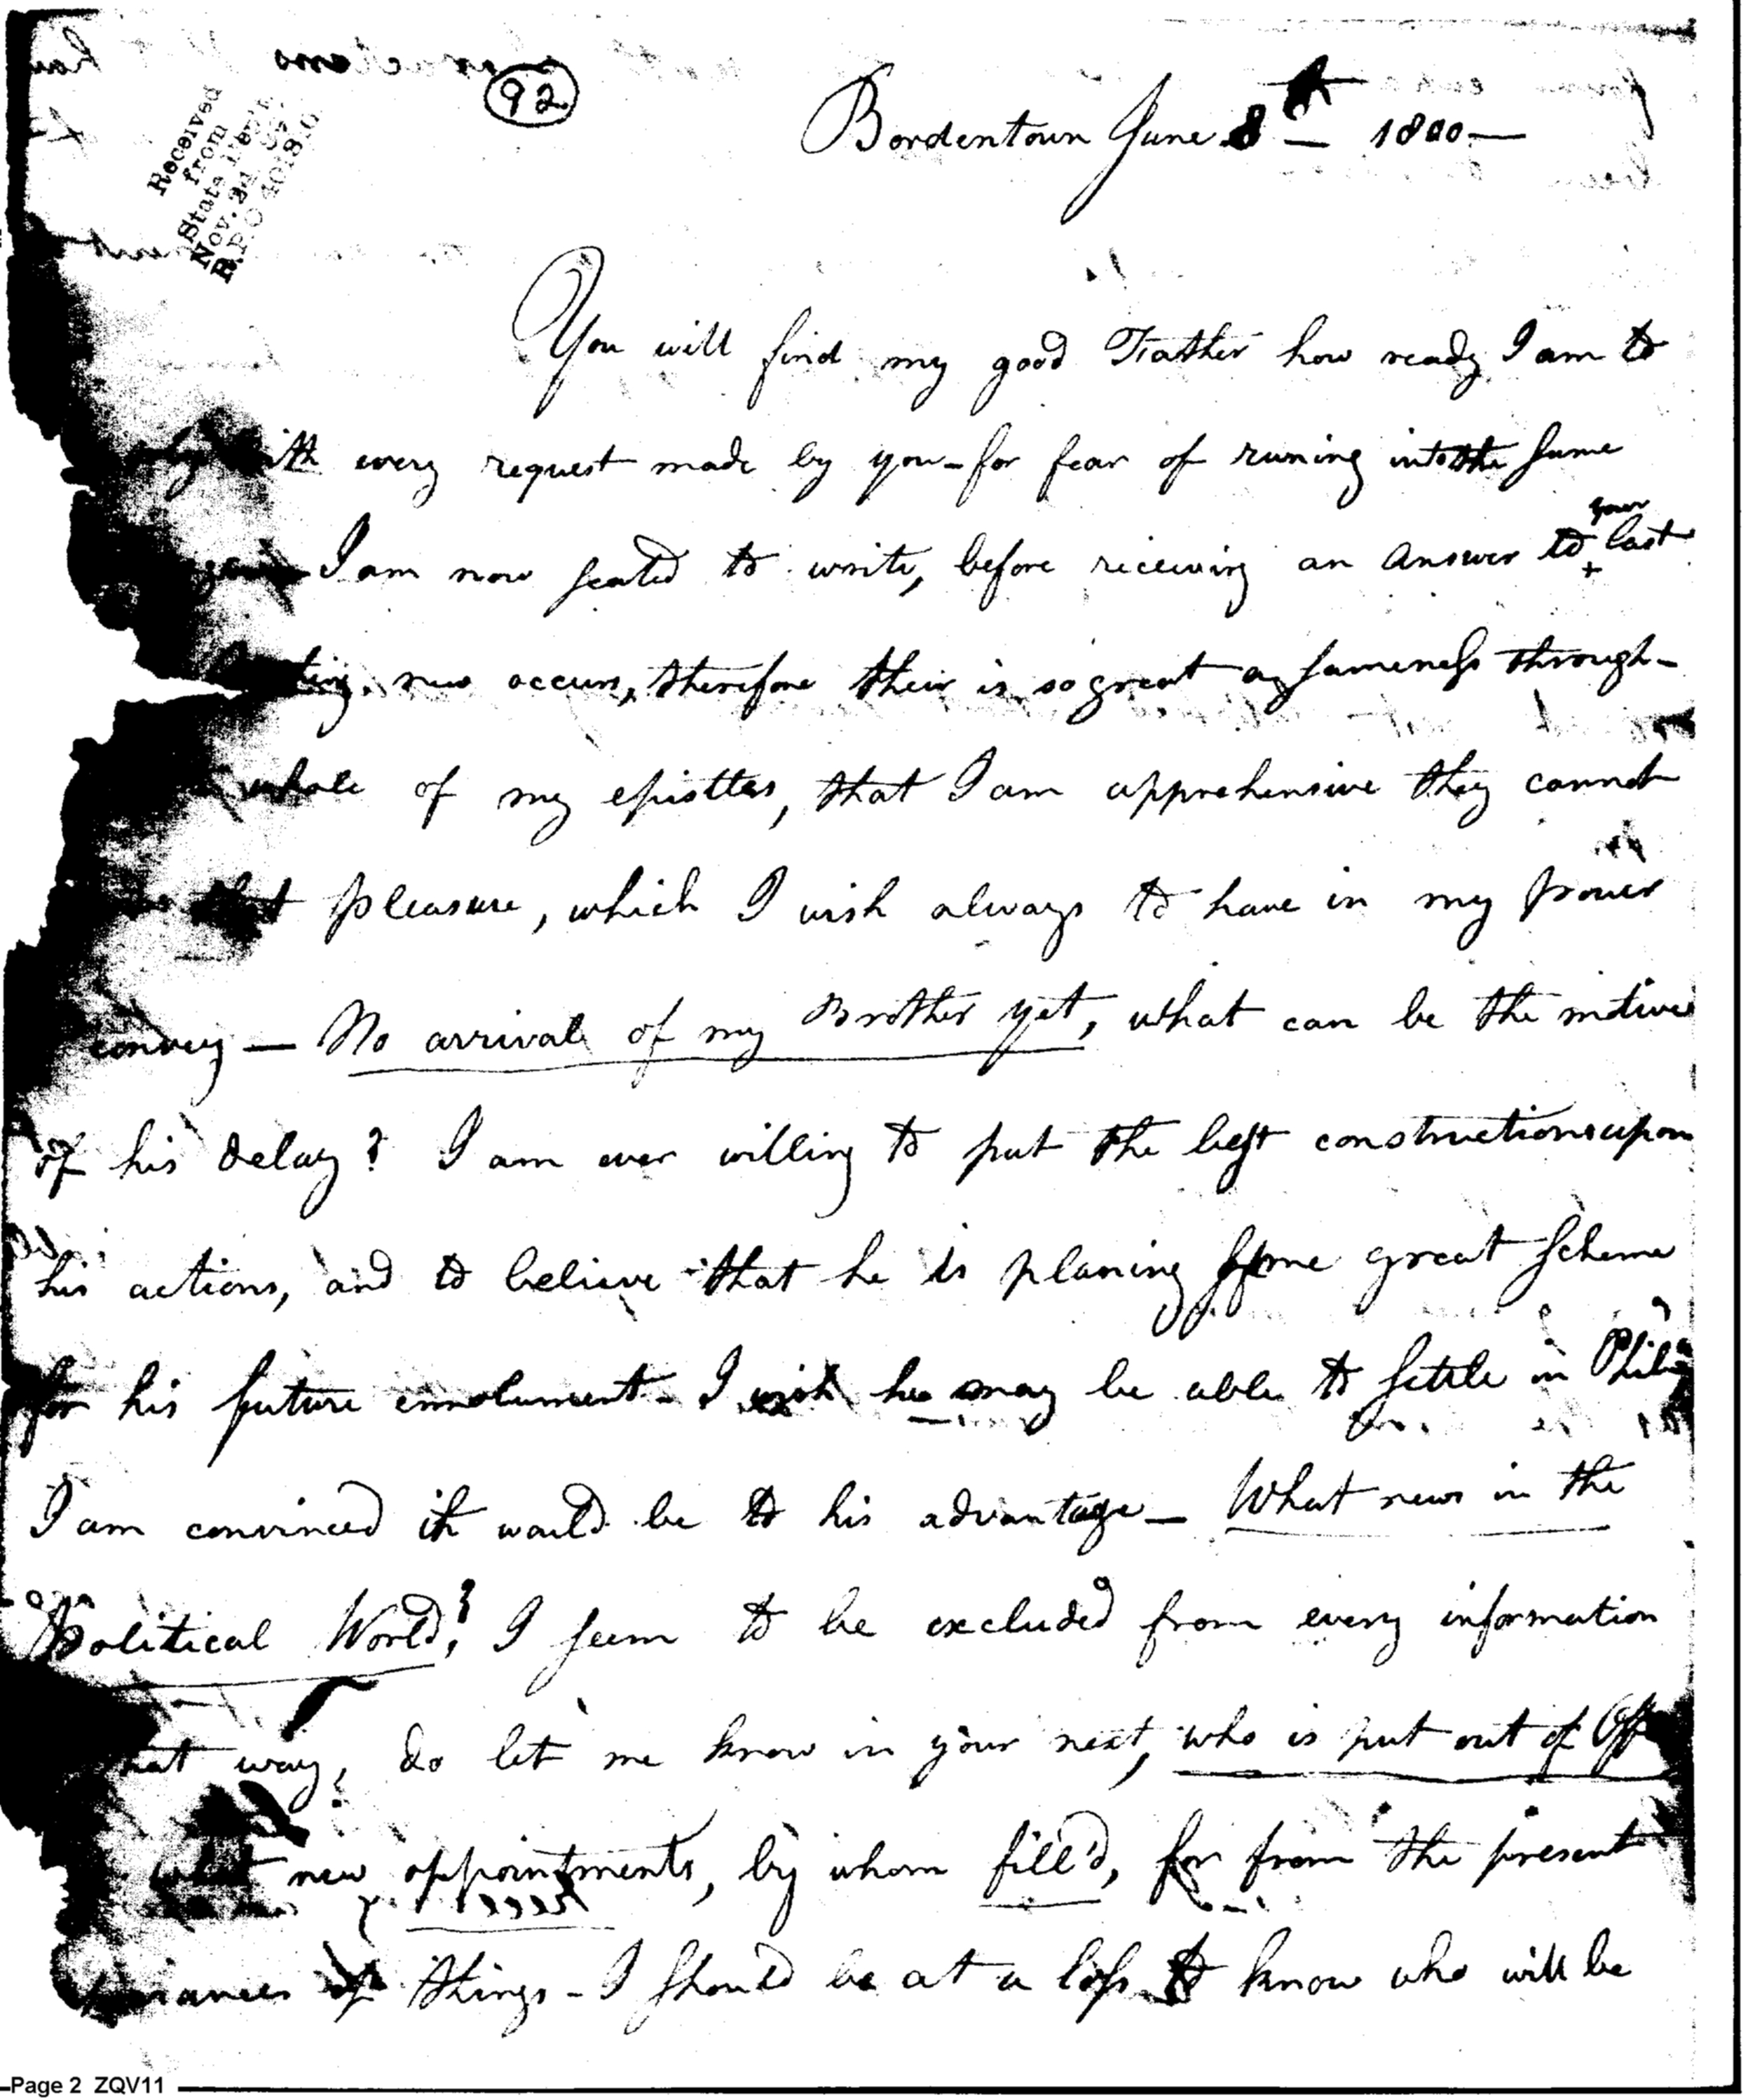 92
Received
from
State Dep't.
Nov. 2d
R.P.O 401810
Bordentown June 8th — 1800 —
You will find my good Father how ready I am to
ith every request made by you - for fear of runing into the same
I am now seated to write, before receiving an answer to your last
ting new occurs, therefore their is so great a sameness through-
whole of my epistles, that I am apprehensive they cannot
that pleasure, which I wish always to have in my power
convey — No arrival of my Brother yet, what can be the motives
of his delay? I am ever willing to put the best constructions upon
his actions, and to believe that he is planing some great scheme
for his future emolument - I wish he may be able to settle in Phila
I am convinced it would be to his advantage — What news in the
Political World? I seem to be excluded from every information
hat way, do let me know in your next, who is put out of Off
what new appointments, by whom fill'd, for from the present
of things - I should be at a loss to know who will be
Page 2 ZQV11